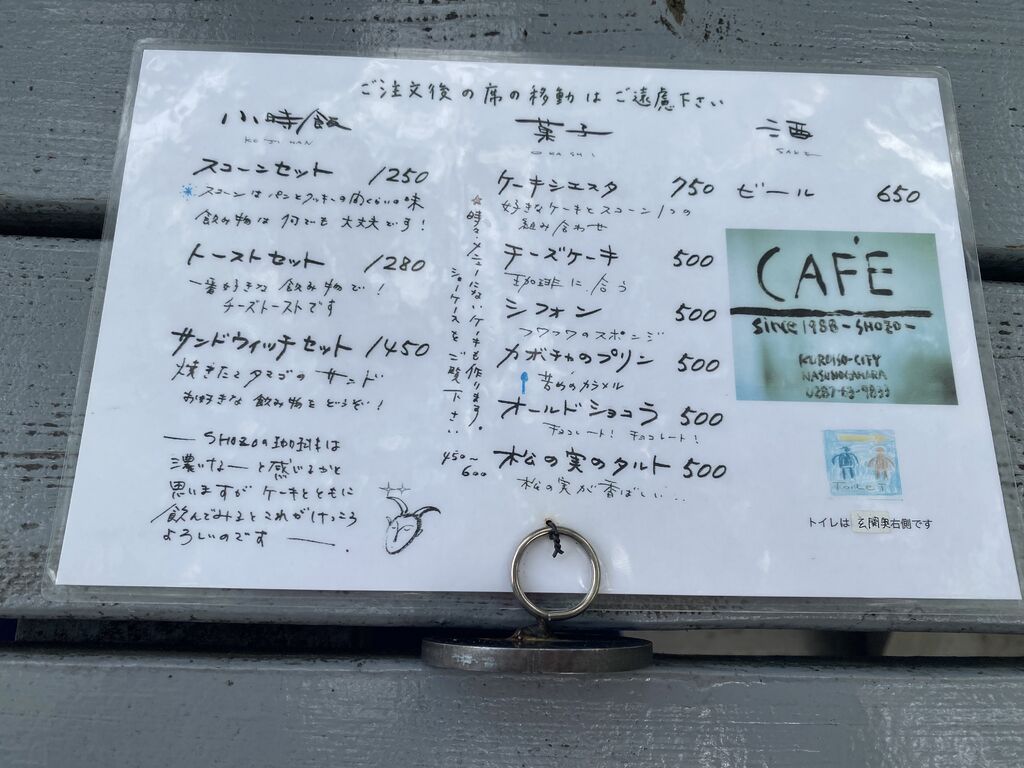 ご注文後の席の移動はご遠慮下さい
小時飯
KOJI HAN
スコーンセット 1250
*スコーンはパンとクッキーの間くらいの味
飲み物は何でも大丈夫です!
トーストセット 1280
一番好きな飲み物で!
チーズトーストです
サンドウィッチセット 1450
焼きたてタマゴのサンド
お好きな飲み物をどうぞ!
— SHOZOの珈琲は
濃いなー と感じるかと
思いますが ケーキとともに
飲んでみるとこれがけっこう
よろしいのです —.
菓子
OKASHI
☆時々メニューにないケーキも作ります。
ショーケースをご覧下さい
450~
600
ケーキシエスタ 750
好きなケーキとスコーン1つの
組み合わせ
チーズケーキ 500
珈琲に合う
シフォン 500
フワフワのスポンジ
カボチャのプリン 500
昔ながらのカラメル
オールドショコラ 500
チョコレート! チョコレート!
松の実のタルト 500
松の実が香ばしい...
酒
SAKE
ビール 650
CAFÉ
since 1988 - SHOZO -
KUROISO-CITY
NASUNOGAHARA
0287-63-9833
Toilet
トイレは 玄関奥右側です